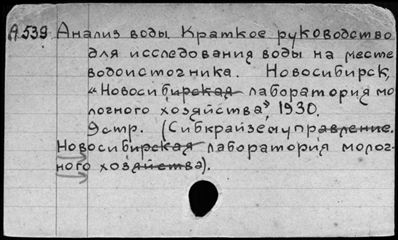 А539 Анализ воды Краткое руководство
для исследования воды на месте
водоисточника. Новосибирск,
"Новосибирская лаборатория мо
лочного хозяйства", 1930.
9стр. (Сибкрайземуправление.
Новосибирская лаборатория молоч-
ного хозяйства).